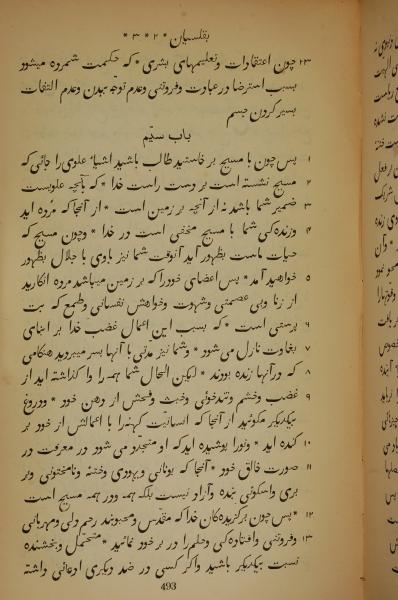 بقلسیان * ۲ * ۳ *
۲۳ چون اعتقادات و تعلیمهای بشری * که حکمت شمرده میشود
بسبب استرضا در عبادت و فروتنی و عدم توجّه ببدن و عدم التفات
بسیر کردن جسم
باب سیّم
۱ پس چون با مسیح بر خاستید طالب باشید اشیاء علوی را جائی که
۲ مسیح نشسته است بر دست راست خدا * که بآنچه علویست
۳ ضمیر شما باشد نه از آنچه بر زمین است * از آنجا که مرده اید
۴ و زنده کی شما با مسیح مخفی است در خدا * و چون مسیح که
حیات ماست بظهور آید آنوقت شما نیز باوی با جلال بظهور
۵ خواهید آمد * پس اعضای خود را که بر زمین میباشد مرده انگارید
از زنا و بی عصمتی و شهوت و خواهش نفسانی و طمع که بت
۶ پرستی است * که بسبب این اعمال غضب خدا بر ابنای
۷ بغاوت نازل می شود * و شما نیز مدتی با آنها بسر میبردید هنکامی
۸ که در آنها زنده بودید * لیکن الحال شما همه را وا کذاشته اید از
۹ غضب و خشم و تندخوئی و خبث و فحش از دهن خود * و دروغ
بیکدیکر مکوئید از آنجا که انسانیّت کهنه را با اعمالش از خود بر
۱۰ کنده اید * و نو را پوشیده اید که او متجدّد می شود در معرفت بر
۱۱ صورت خالق خود * آنجا که یونانی و یهودی و ختنه و نامختونی و بر
بری و اسکوتی بنده و آزاد نیست بلکه همه و در همه مسیح است
۱۲ * پس چون برکزیده کان خدا که مقدّس و محبوبند رحم دلی و مهربانی
۱۳ و فروتنی و افتاده کی و حلم را در بر خود نمائید * متحمّل و بخشنده
نسبت بیکدیکر باشید و اکر کسی در ضد دیکری ادعائی داشته
493